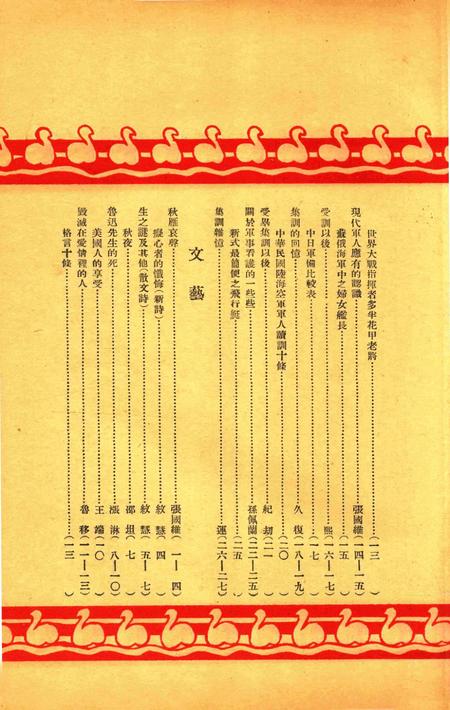 世界大戰指揮者多半花甲老將……(一三)
現代軍人應有的認識……張國維(一四-一五)
蘇俄海軍中之婦女艦長……(一五)
受訓以後……熙(一六-一七)
中日軍備比較表……(一七)
集訓的回憶……久復(一八-一九)
中華民國陸海空軍軍人讀訓十條……(二〇)
受畢集訓以後……紀劫(二一)
關於軍事看護的一些些……孫佩蘭(二二-二五)
新式最簡便之飛行艇……(二五)
集訓雜憶……運(二六-二七)
文藝
秋雁哀聲……張國維(一-四)
癡心者的懺悔(新詩)……紋慧(四)
生之謎及其他(散文詩)……紋慧(五-七)
秋夜……邵坦(七)
魯迅先生的死……漲淋(八-一〇)
美國人的享受……王端(一〇)
毀滅在愛情裡的人……魯移(一一-一三)
格言十條……(一三)